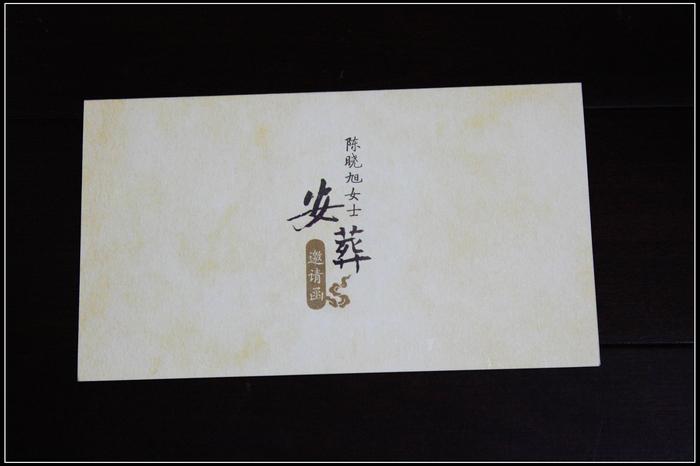 陈晓旭女士
安葬
邀请函